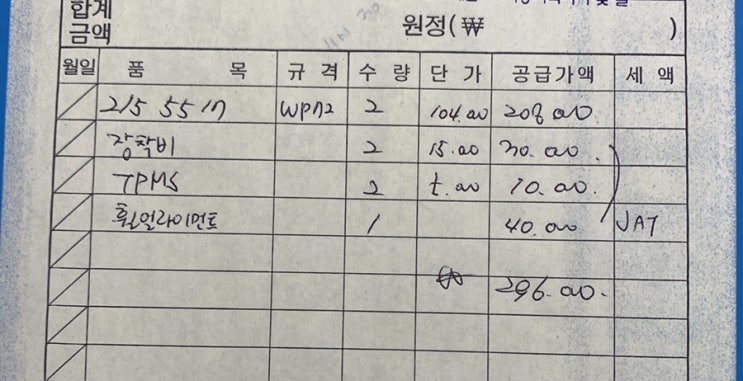 합계
금액
원정(₩ )
월일 품 목 규 격 수 량 단 가 공급가액 세 액
215 55 17 2 104.00 208.00
장착비 2 15.00 30.00
TPMS 2 5.00 10.00
휠얼라이먼트 1 40.00
₩ 296.00.